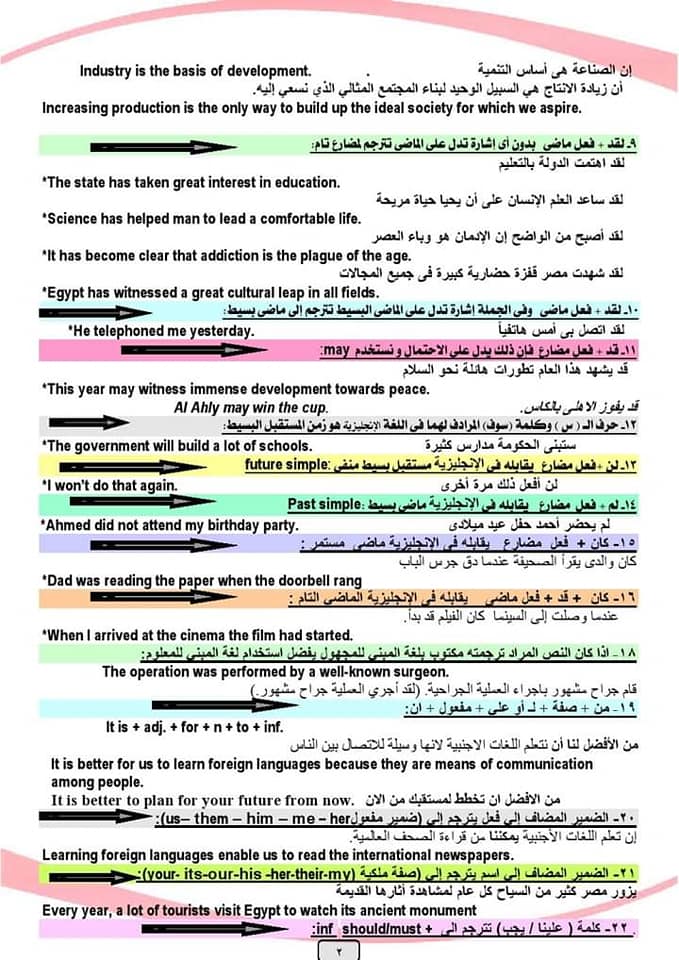 Industry is the basis of development. . إن الصناعة هى أساس التنمية
أن زيادة الانتاج هي السبيل الوحيد لبناء المجتمع المثالي الذي نسعي إليه.
Increasing production is the only way to build up the ideal society for which we aspire.
٩- لقد + فعل ماضي بدون أى إشارة تدل على الماضي تترجم لمضارع تام:
لقد اهتمت الدولة بالتعليم
*The state has taken great interest in education.
لقد ساعد العلم الإنسان على أن يحيا حياة مريحة
*Science has helped man to lead a comfortable life.
لقد أصبح من الواضح إن الإدمان هو وباء العصر
*It has become clear that addiction is the plague of the age.
لقد شهدت مصر قفزة حضارية كبيرة فى جميع المجالات
*Egypt has witnessed a great cultural leap in all fields.
١٠- لقد + فعل ماضي وفى الجملة إشارة تدل على الماضي البسيط تترجم إلى ماضي بسيط:
*He telephoned me yesterday. لقد اتصل بى أمس هاتفياً
١١- قد + فعل مضارع فإن ذلك يدل على الاحتمال و نستخدم may:
قد يشهد هذا العام تطورات هائلة نحو السلام
*This year may witness immense development towards peace.
Al Ahly may win the cup. قد يفوز الاهلى بالكاس.
١٢- حرف الـ ( س ) وكلمة (سوف) المرادف لهما فى اللغة الإنجليزية هو زمن المستقبل البسيط:
*The government will build a lot of schools. ستبنى الحكومة مدارس كثيرة
١٣- لن +فعل مضارع يقابله فى الإنجليزية مستقبل بسيط منفى :future simple
*I won't do that again. لن أفعل ذلك مرة أخرى
١٤- لم + فعل مضارع يقابله فى الإنجليزية ماضي بسيط :Past simple
*Ahmed did not attend my birthday party. لم يحضر أحمد حفل عيد ميلادى
١٥- كان + فعل مضارع يقابله فى الإنجليزية ماضى مستمر :
كان والدى يقرأ الصحيفة عندما دق جرس الباب
*Dad was reading the paper when the doorbell rang
١٦- كان + قد + فعل ماضى يقابله فى الإنجليزية الماضى التام :
عندما وصلت إلى السينما كان الفيلم قد بدأ.
*When I arrived at the cinema the film had started.
١٨- اذا كان النص المراد ترجمته مكتوب بلغة المبني للمجهول يفضل استخدام لغة المبني للمعلوم:
The operation was performed by a well-known surgeon.
قام جراح مشهور باجراء العملية الجراحية. (لقد أجري العملية جراح مشهور.)
١٩- من + صفة + لـ أو علي + مفعول + ان:
It is + adj. + for + n + to + inf.
من الأفضل لنا أن نتعلم اللغات الاجنبية لانها وسيلة للاتصال بين الناس
It is better for us to learn foreign languages because they are means of communication
among people.
It is better to plan for your future from now. من الافضل ان تخطط لمستقبك من الان
٢٠- الضمير المضاف إلي فعل يترجم إلي (ضمير مفعولus– them – him – me – her):
إن تعلم اللغات الأجنبية يمكننا من قراءة الصحف العالمية.
Learning foreign languages enable us to read the international newspapers.
٢١- الضمير المضاف إلي اسم يترجم إلي (صفة ملكية (your- its-our-his -her-their-my):
يزور مصر كثير من السياح كل عام لمشاهدة أثارها القديمة
Every year, a lot of tourists visit Egypt to watch its ancient monument
٢٢- كلمة ( علينا / يجب) تترجم الى inf should/must +:
٢